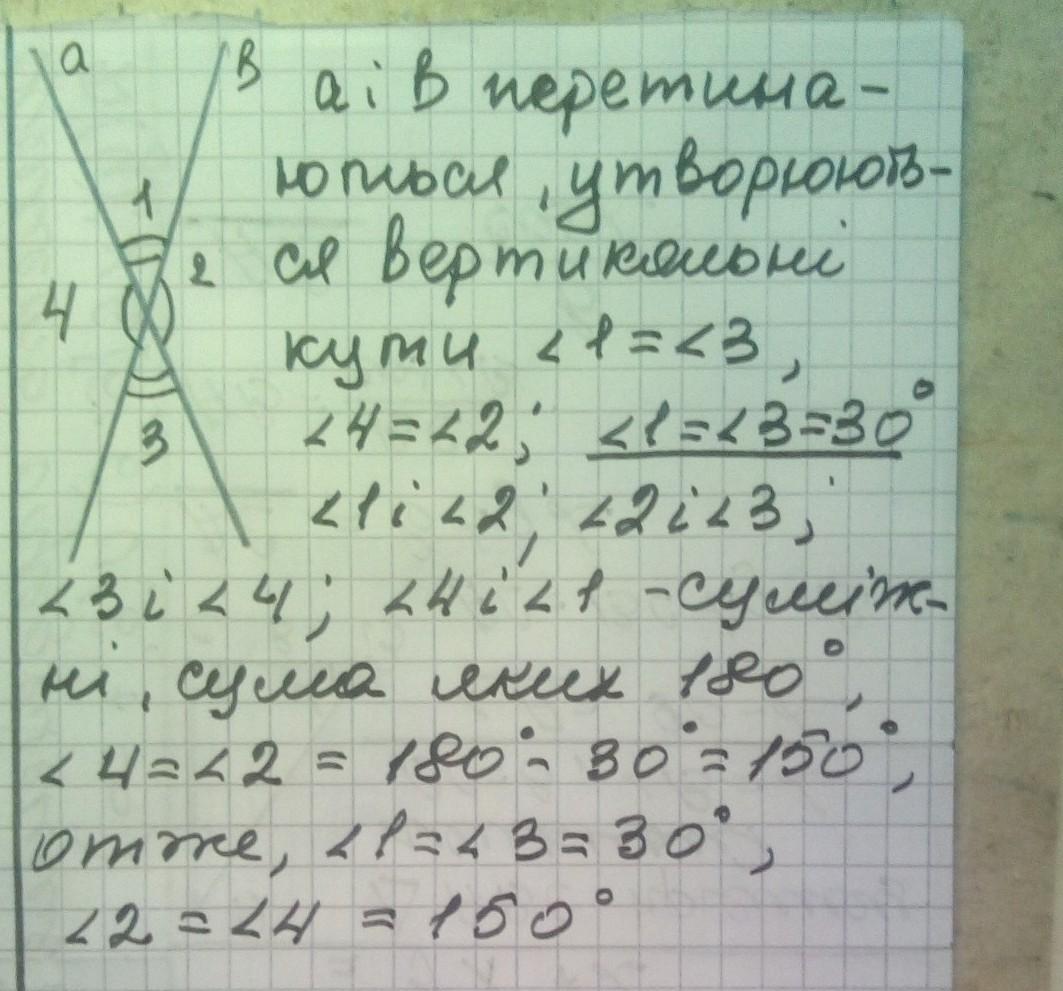 a
в
1
2
4
3
а і в перетина-
ються, утворюють-
ся вертикальні
кути <1=<3,
<4=<2; <1=<3=30°
<1 і <2; <2 і <3;
<3 і <4; <4 і <1 -суміж-
ні, сума яких 180°,
<4=<2 = 180°- 30°=150°,
отже, <1=<3=30°,
<2=<4 = 150°